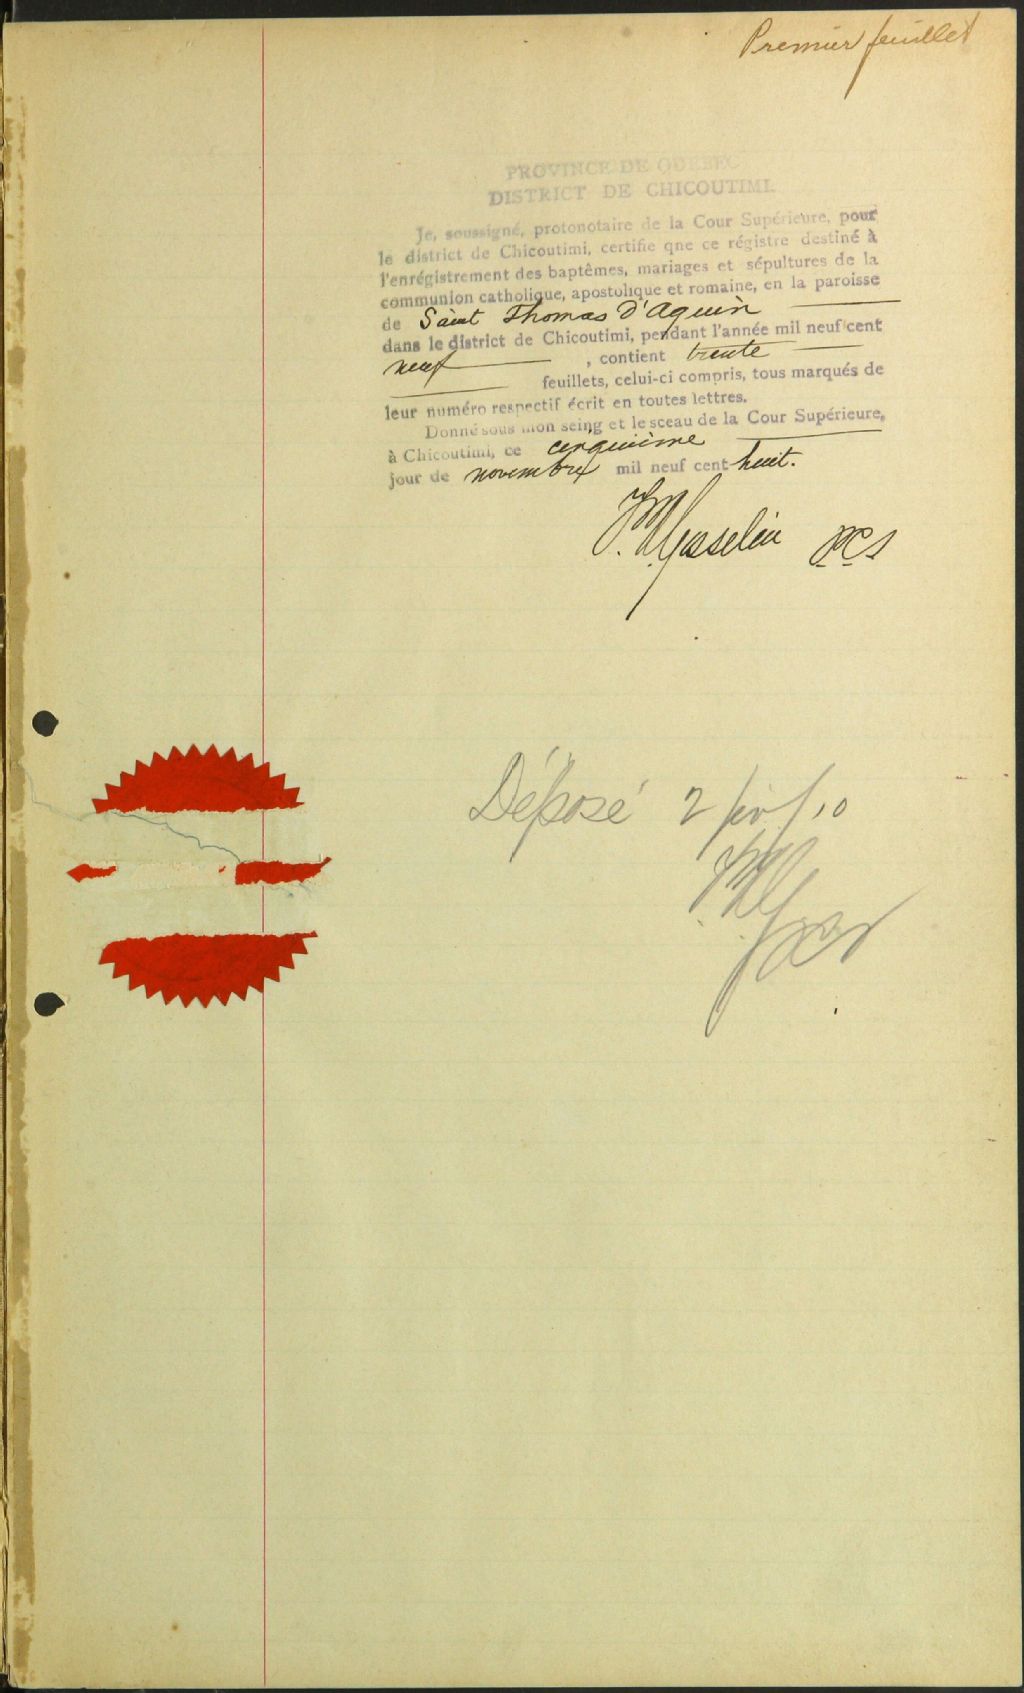 Premier feuillet
PROVINCE DE QUEBEC
DISTRICT DE CHICOUTIMI.
Je, soussigné, protonotaire de la Cour Supérieure, pour
le district de Chicoutimi, certifie qne ce régistre destiné à
l'enrégistrement des baptêmes, mariages et sépultures de la
communion catholique, apostolique et romaine, en la paroisse
de Saint Thomas D'Aquin
dans le district de Chicoutimi, pendant l'année mil neuf cent
neuf, contient trente
feuillets, celui-ci compris, tous marqués de
leur numéro respectif écrit en toutes lettres.
Donné sous mon seing et le sceau de la Cour Supérieure,
à Chicoutimi, ce cinquième
jour de novembre mil neuf cent huit.
Gosselin PCS
Déposé 2 fév/10